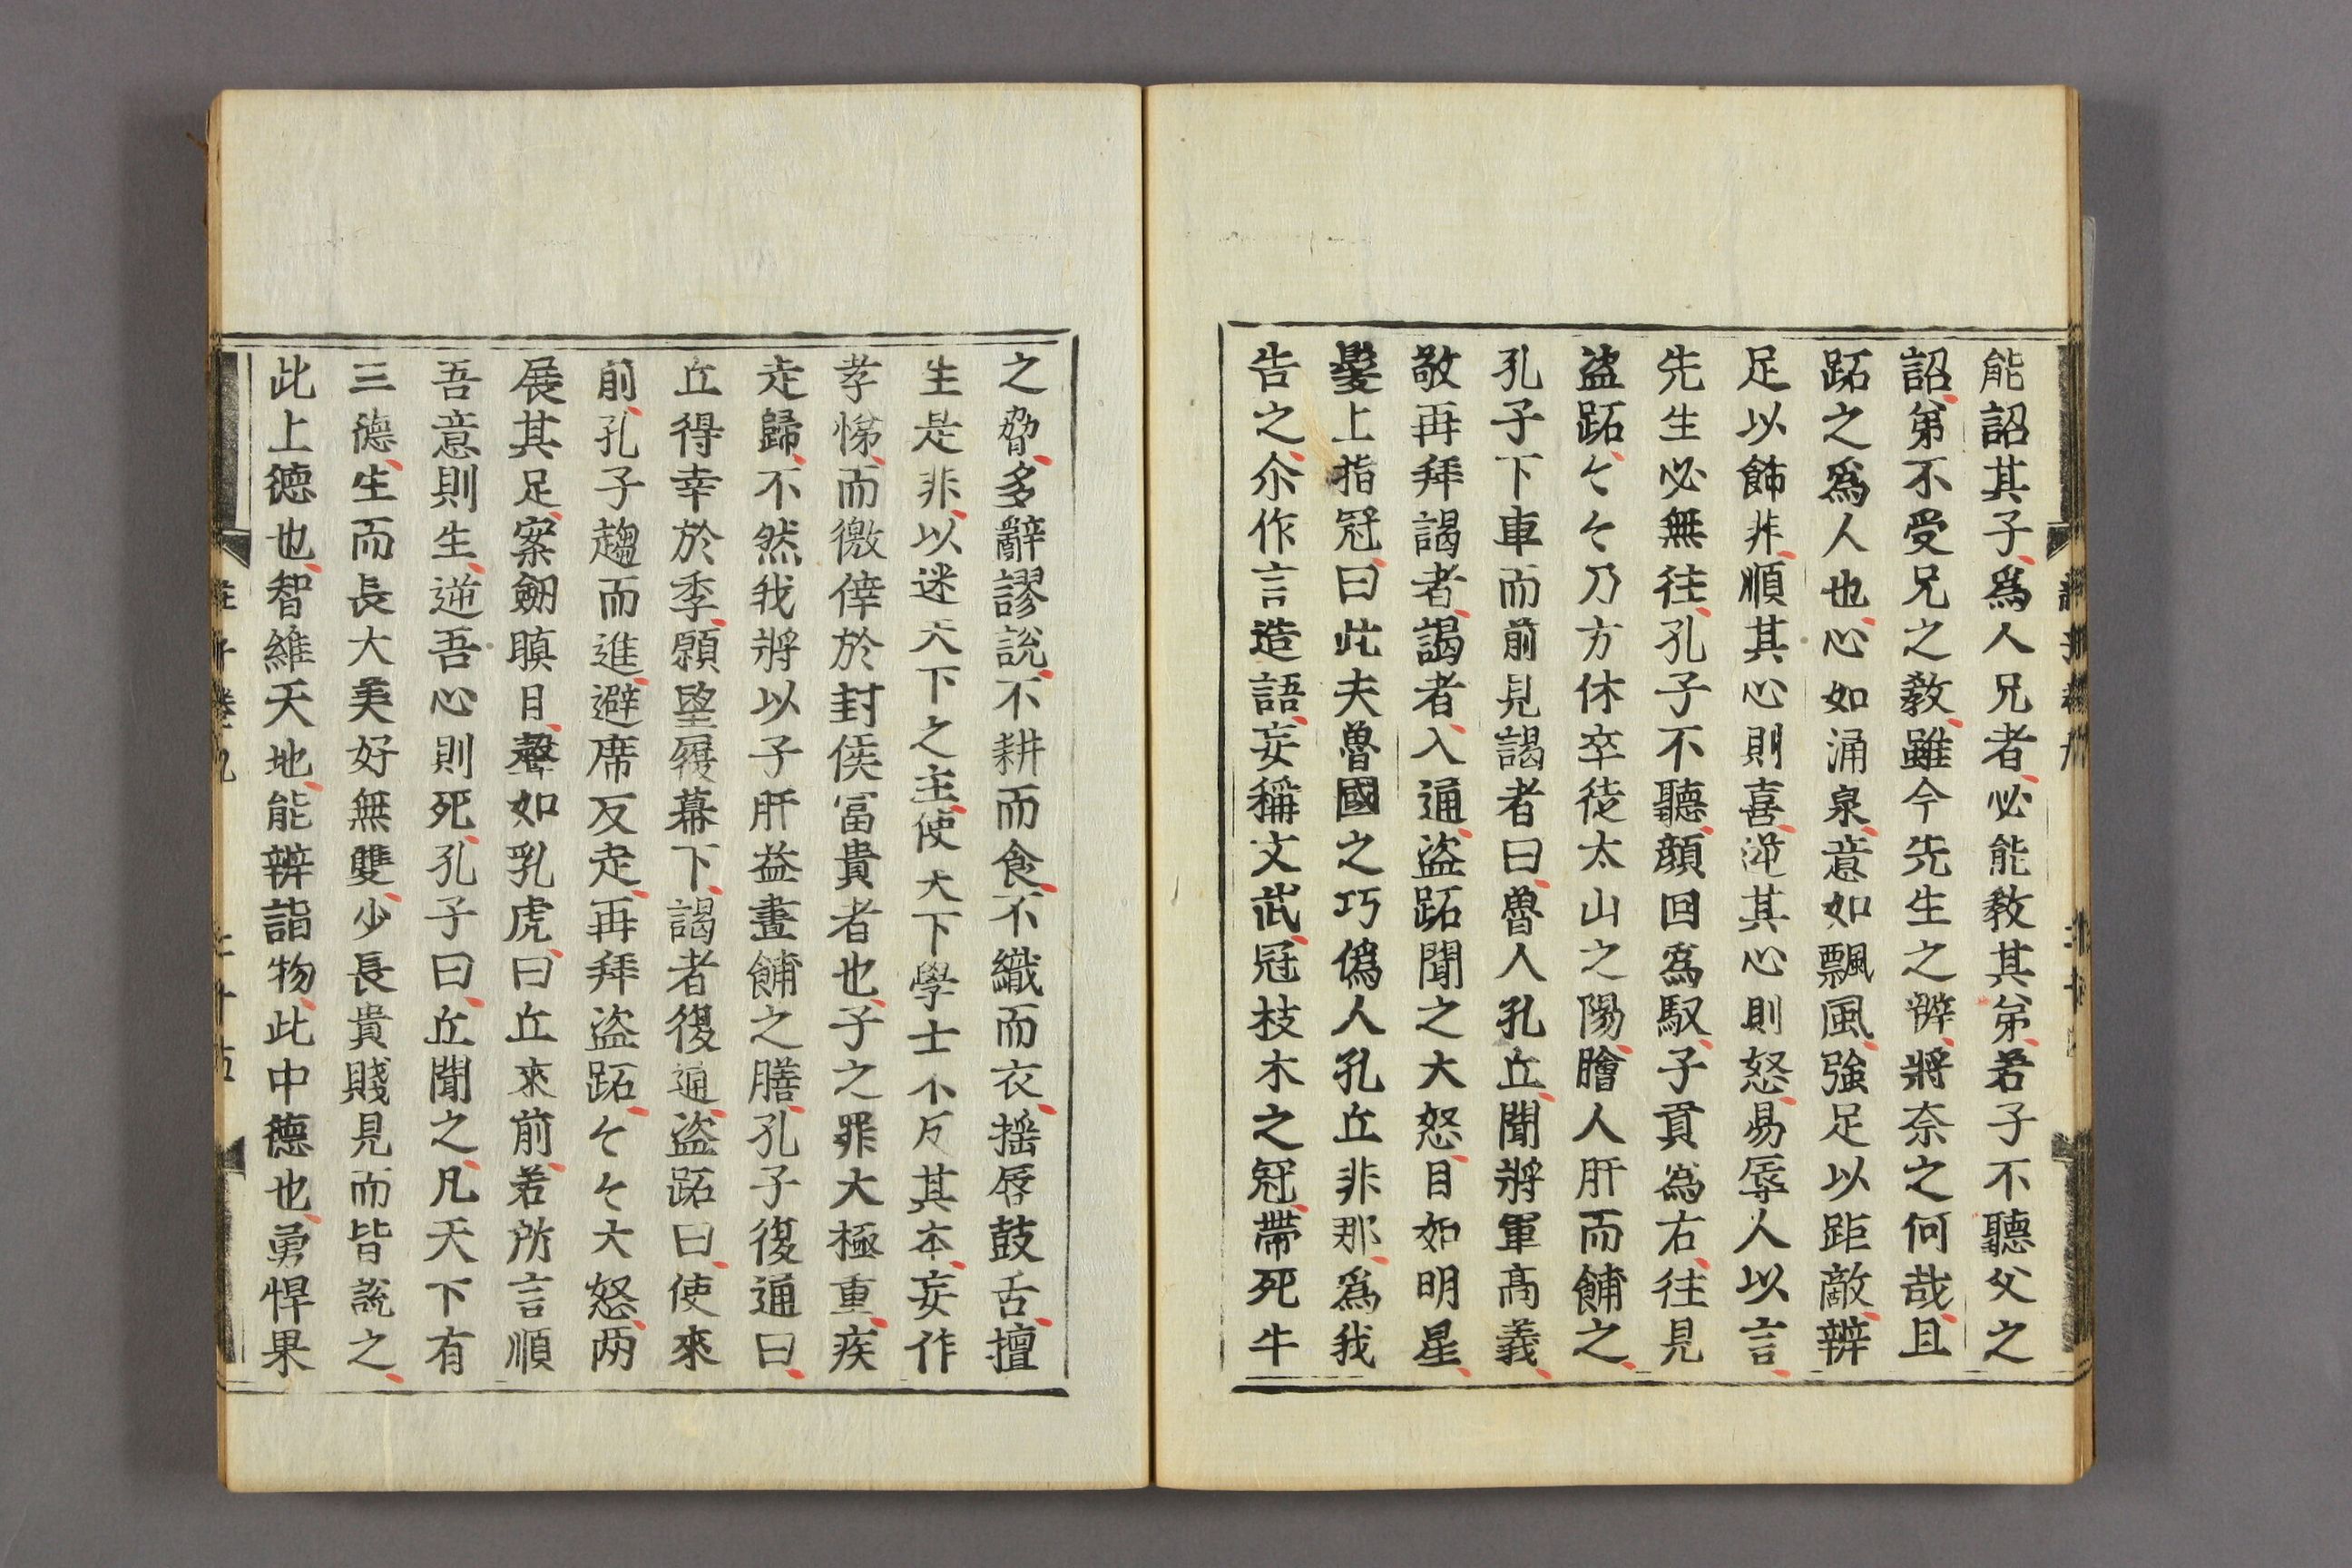 能詔其子爲人兄者必能敎其弟若子不聽父之
詔弟不受兄之敎雖今先生之辯將奈之何哉且
跖之爲人也心如涌泉意如飄風強足以距敵辨
足以飾非順其心則喜逆其心則怒易辱人以言
先生必無往孔子不聽顔回爲馭子貢爲右往見
盜跖々々乃方休卒徒太山之陽膾人肝而餔之
孔子下車而前見謁者曰魯人孔丘聞將軍髙義
敬再拜謁者謁者入通盜跖聞之大怒目如明星
髮上指冠曰此夫魯國之巧僞人孔丘非那爲我
告之尒作言造語妄稱文武冠枝木之冠帶死牛
之脅多辭謬說不耕而食不織而衣揺唇鼓舌擅
生是非以迷天下之主使天下學士不反其本妄作
孝悌而徼倖於封侯富貴者也子之罪大極重疾
走歸不然我將以子肝益晝餔之膳孔子復通曰
丘得幸於季願望履幕下謁者復通盜跖曰使來
前孔子趨而進避席反走再拜盜跖々々大怒两
展其足案劒瞋目聲如乳虎曰丘來前若所言順
吾意則生逆吾心則死孔子曰丘聞之凡天下有
三德生而長大美好無雙少長貴賤見而皆說之
此上德也智維天地能辨詣物此中德也勇悍果
莊子卷九
二十五